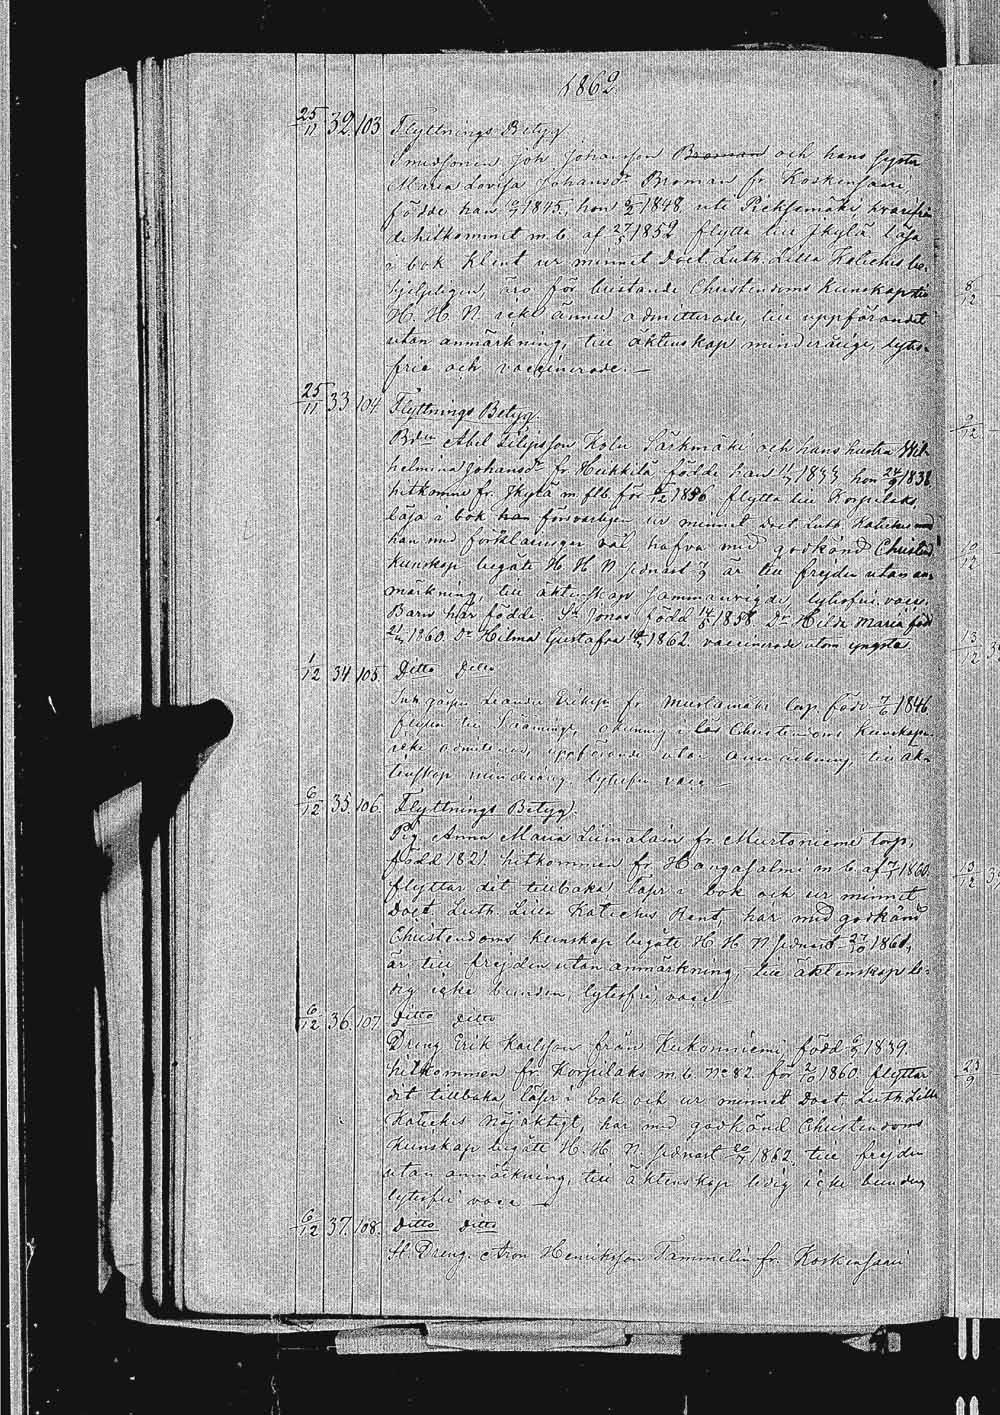 1862
25/11 32 103 Flyttnings Betyg
Smedsonen Joh Johansson Broman och hans syster
Maria Lovisa Johansdr Broman fr. Koskensaari
födde han 1845, hon 1848 uti Pieksemäki hvarifrån
de hitkommit m. b. af 27/5 1852 flytta till Jkylä läsa
i bok klent ur minnet Doct. Luth. Lilla Kateches be-
hjelpligen, äro för bristande Christendoms Kunskap till
H. H. N. icke ännu admitterade, till uppförandet
utan anmärkning, till äktenskap minderårige, lytes-
frie och vaccinerade. —
25/11 33 104. Flyttnings Betyg.
Abel Filipsson Särkmäki och hans hustru Wil-
helmina Johansdr fr. Heikkilä födde han 1833 hon 24/9 1831
hitkomne fr. Jkylä m. flb. för 1856 flytta till Korpilaks,
läsa i bok han försvarligen ur minnet Doct. Luth. Kateches
han med förklaringar väl hafva med godkänd Christend
kunskap begått H. H. N sednast är till frejden utan an-
märkning, till äktenskap sammanvigde, lytesfri. vacc.
Barn här födde. Sn Jonas född 1858 Dr Hilda Maria född
1860. Dr Hilma Gustafva 1862. vaccinerade utom yngsta.
1/12 34 105. Ditto Ditto
Leander Eriksson fr. torp född 1846
flyttar till Christendoms Kunskap
icke admitterad, uppförande utan anmärkning, till äk-
tenskap minderårig lytesfri vacc —
6/12 35. 106. Flyttnings Betyg.
Pig Anna Maria Liimatain fr. Murtoniemi torp,
född 1821. hitkommen fr. Hangasalmi m b. af 1860.
flyttar dit tillbaka läser i bok och ur minnet
Doct. Luth. Lilla Kateches Rent, har med godkänd
Christendoms Kunskap begått H. H N sednast 27/10 1861,
är till frejden utan anmärkning, till äktenskap le-
dig icke bunden, lytesfri, vacc —
6/12 36. 107 Ditto Ditto
Dreng Erik Karlsson från Kukonniemi född 1839.
hitkommen fr. Korpilaks m. b. No 82. för 1860 flyttar
dit tillbaka läser i bok och ur minnet Doct. Luth. Lilla
Kateches Nöjaktigt, har med godkänd Christendoms
Kunskap begått H. H. N. sednast 1862, till frejden
utan anmärkning, till äktenskap ledig icke bunden
lytesfri vacc —
6/12 37. 108. Ditto Ditto
Dreng. Aron Henriksson Tammelin fr. Koskensaari